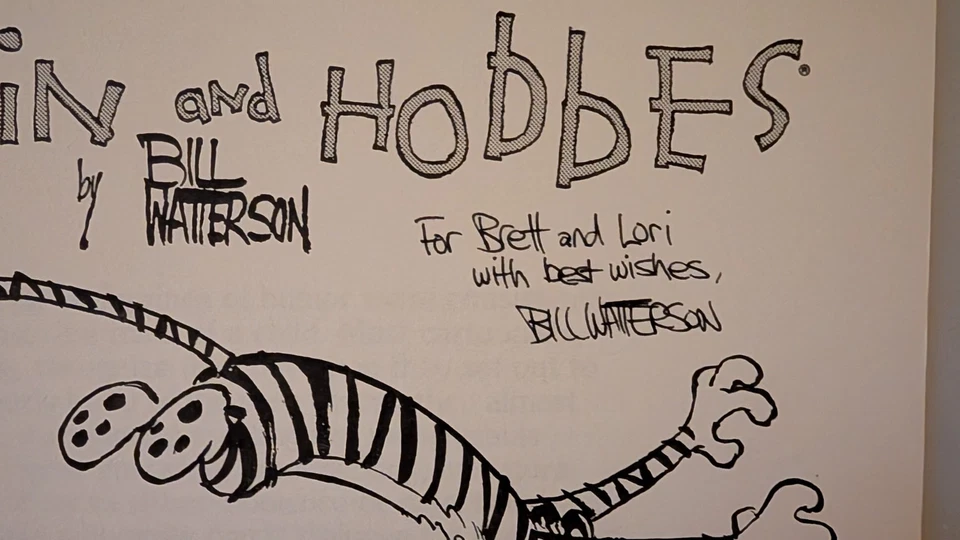 iN and HObbES®
by BILL
WATTERSON
For Brett and Lori
with best wishes,
BILL WATTERSON